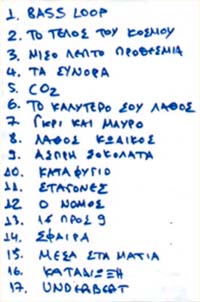 1. BASS LOOP
2. ΤΟ ΤΕΛΟΣ ΤΟΥ ΚΟΣΜΟΥ
3. ΜΙΣΟ ΛΕΠΤΟ ΠΡΟΘΕΣΜΙΑ
4. ΤΑ ΣΥΝΟΡΑ
5. CO2
6. ΤΟ ΚΑΛΥΤΕΡΟ ΣΟΥ ΛΑΘΟΣ
7. ΓΚΡΙ ΚΑΙ ΜΑΥΡΟ
8. ΛΑΘΟΣ ΚΩΔΙΚΟΣ
9. ΑΣΠΡΗ ΣΟΚΟΛΑΤΑ
10. ΚΑΤΑΦΥΓΙΟ
11. ΣΤΑΓΟΝΕΣ
12. Ο ΝΟΜΟΣ
13. 15 ΠΡΟΣ 9
14. ΣΦΑΙΡΑ
15. ΜΕΣΑ ΣΤΑ ΜΑΤΙΑ
16. ΚΑΤΑΝΥΞΗ
17. UNDERBEAT